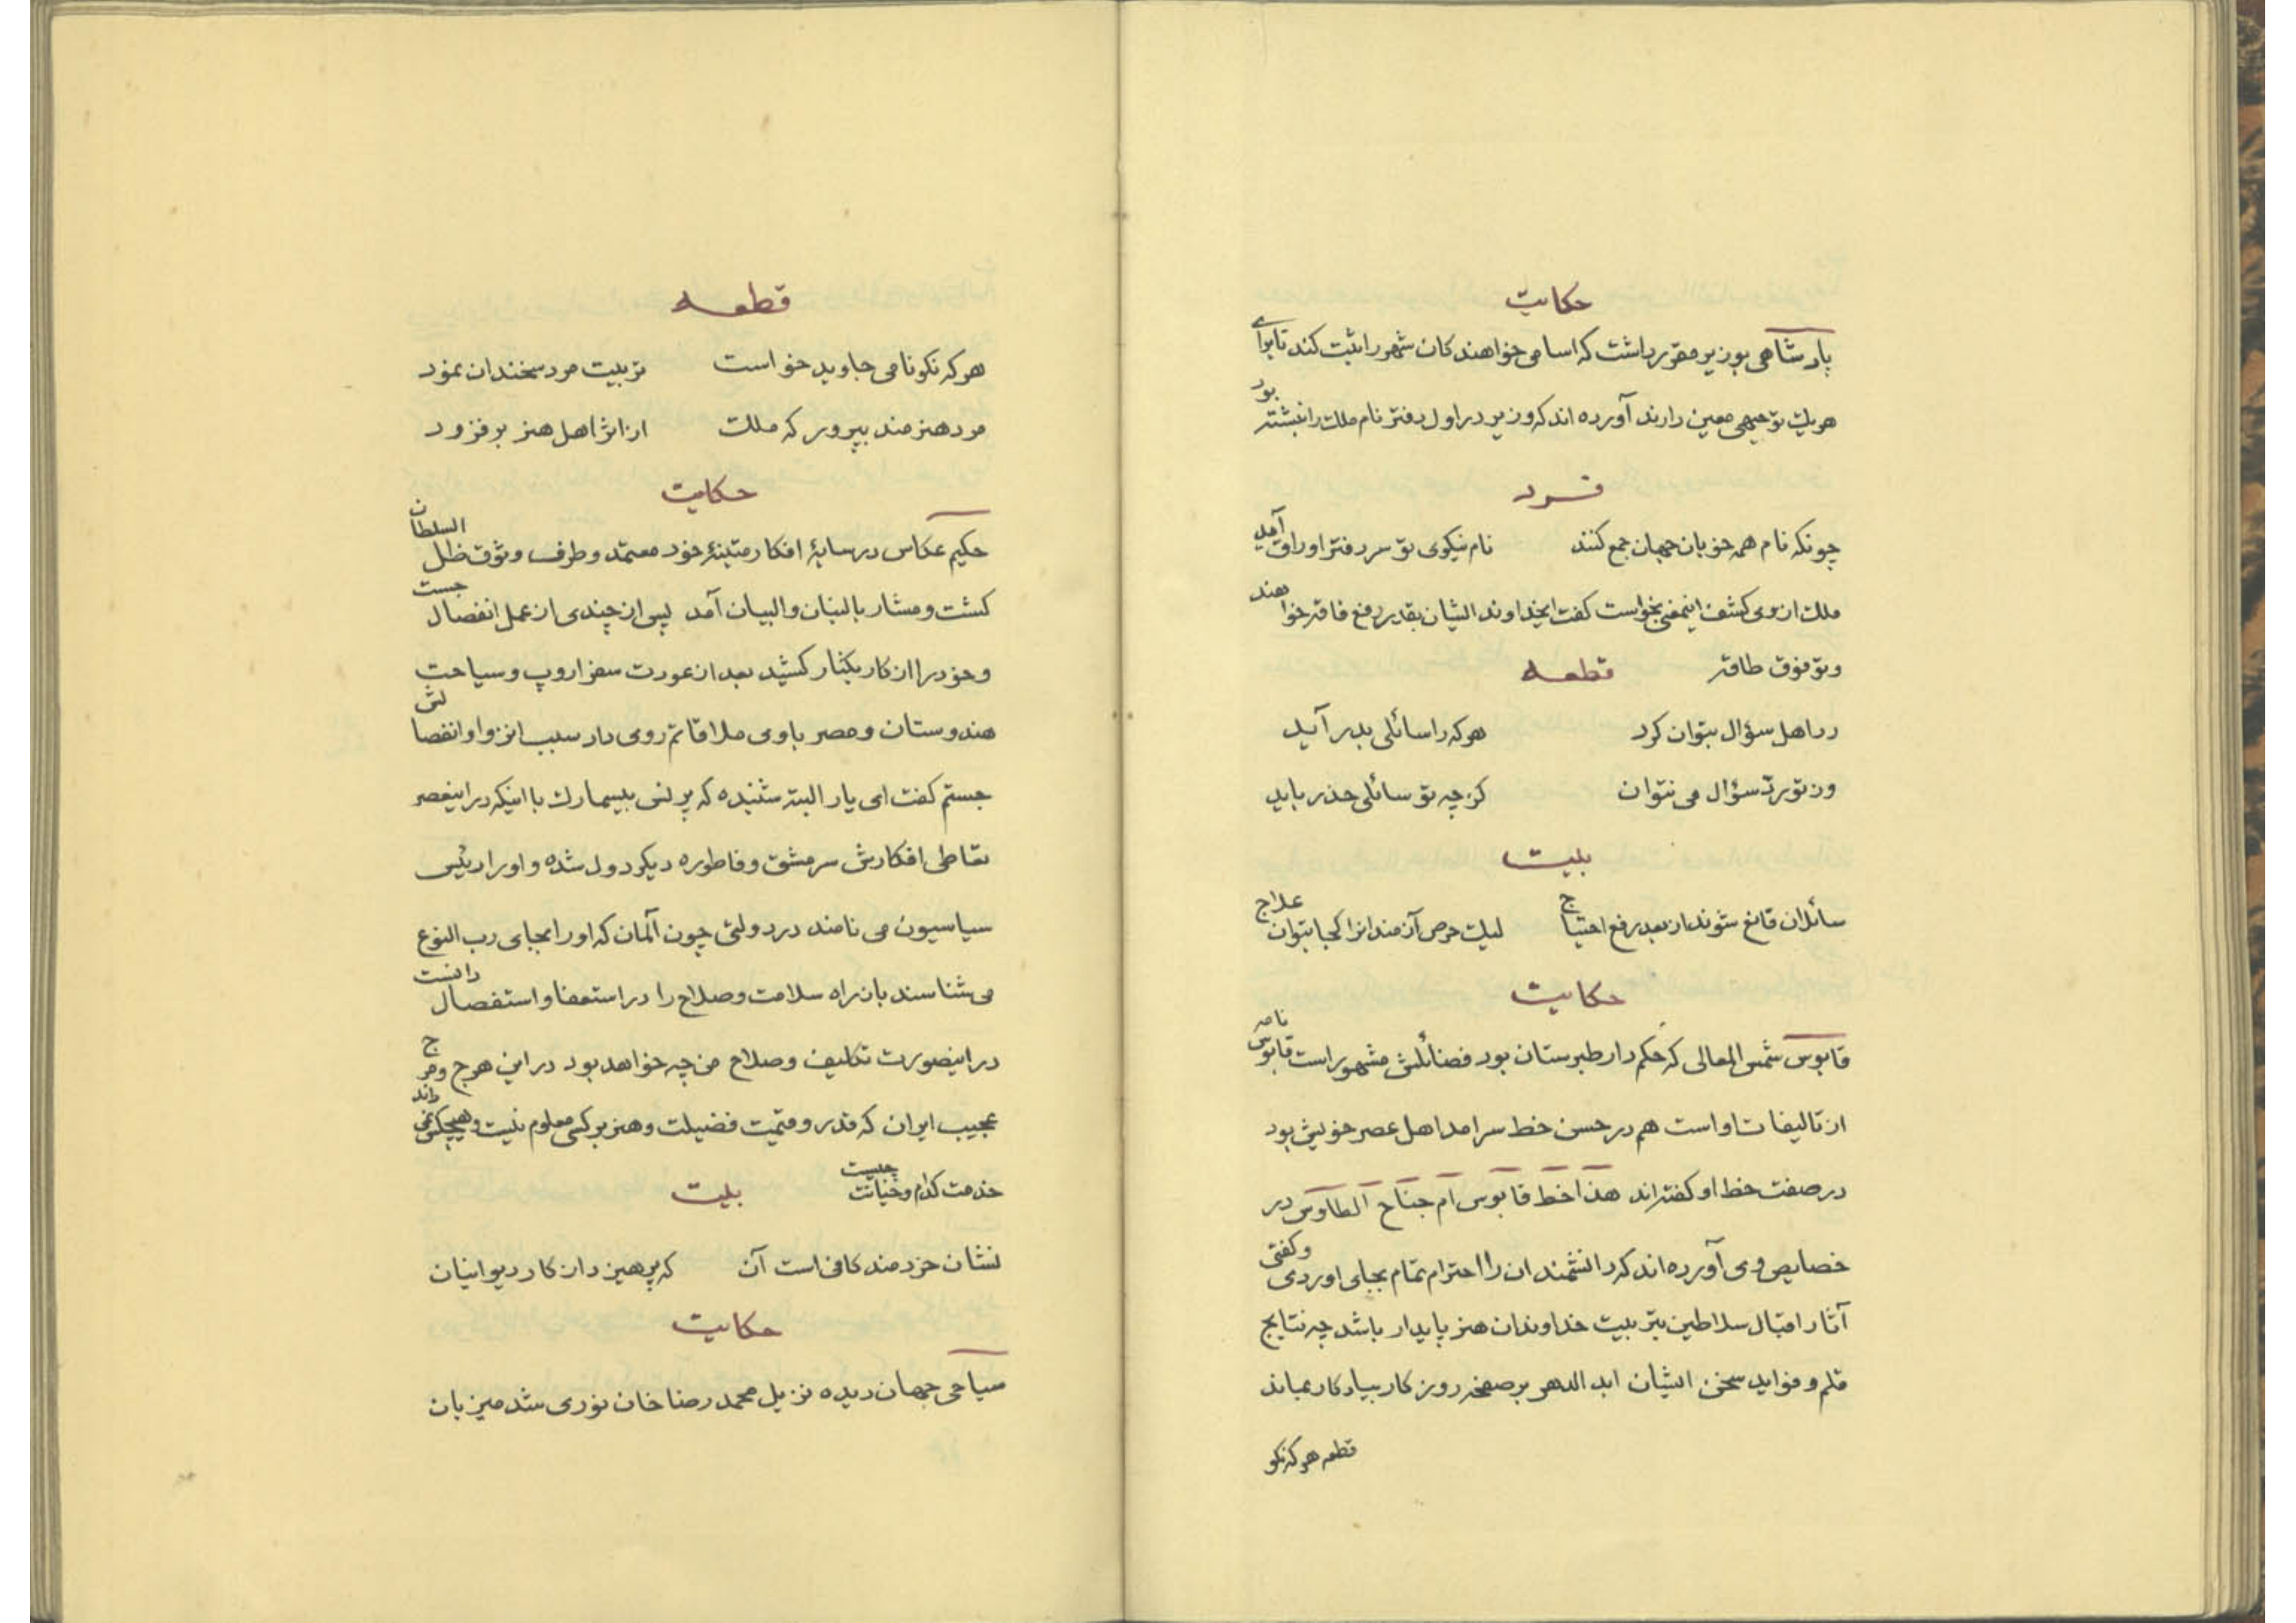 حکایت
پادشاهی بوزیر مقرر داشت که اسامی خواهندکان شهر را ثبت کند تا برای
هریک توجیهی معین دارند آورده اند که وزیر در اول دفتر نام ملک را نبشته بود
فرد
چونکه نام همه خوبان جهان جمع کنند نام نیکوی تو سر دفتر اوراق آمد
ملک از وی کشف اینمعنی بخواست کفت ایخداوند ایشان بقدر رفع فاقه خواهند
وتو فوق طاقه
قطعه
رد اهل سؤال بتوان کرد هرکه را سائلی بدر آید
ور تو رد سؤال می نتوان کر چه تو سائلی حذر باید
بیت
سائلان قانع شوند از بعد رفع احتیاج لیک حرص آزمندانرا کجا بتوان علاج
حکایت
قابوس شمس المعالی که حکم دار طبرستان بود فضائلش مشهور است قابوس نامه
از تالیفات اواست هم در حسن خط سرامد اهل عصر خویش بود
در صفت خط او کفته اند هذا خط قابوس ام جناح الطاوس در
خصایص وی آورده اند که دانشمندان را احترام تمام بجای اوردی وکفتی
آثار اقبال سلاطین بتربیت خداوندان هنر پایدار باشد چه نتایج
قلم و فواید سخن ایشان ابد الدهر بر صفحه روزکار بیادکار بماند
قطعه هرکه نکو
قطعه
هرکه نکو نامی جاوید خواست تربیت مرد سخندان نمود
مرد هنرمند بپرور که ملک از اثر اهل هنر برفزود
حکایت
حکیم عکاس در سایۀ افکار متینۀ خود معتمد وطرف وثوق ظل السلطان
کشت ومشار بالبنان والبیان آمد پس از چندی از عمل انفصال جست
وخود را از کار بکنار کشید بعد از عورت سفر اروپ وسیاحت
هندوستان ومصر باوی ملاقاتم روی داد سبب انزوا وانفصالش
جستم کفت ای یار البته شنیده که پرنس بیسمارک با اینکه در اینعصر
نقاطی افکارش سرمشق وفاطوره دیکر دول شده واو را رئیس
سیاسیون می نامند در دولتی چون آلمان که اورا بجای رب النوع
می شناسند باز راه سلامت وصلاح را در استعفا واستفصال دانست
در اینصورت تکلیف وصلاح من چه خواهد بود در این هرج ومرج
عجیب ایران که قدر وقیمت فضیلت وهنر برکسی معلوم نیست وهیچکس نمی داند
خدمت کدام وخیانت چیست
بیت
نشان خردمند کافی است آن که پرهیز دارد ز کار دیوانیان
حکایت
سیاحی جهان دیده نزیل محمد رضا خان نوری شد میزبان